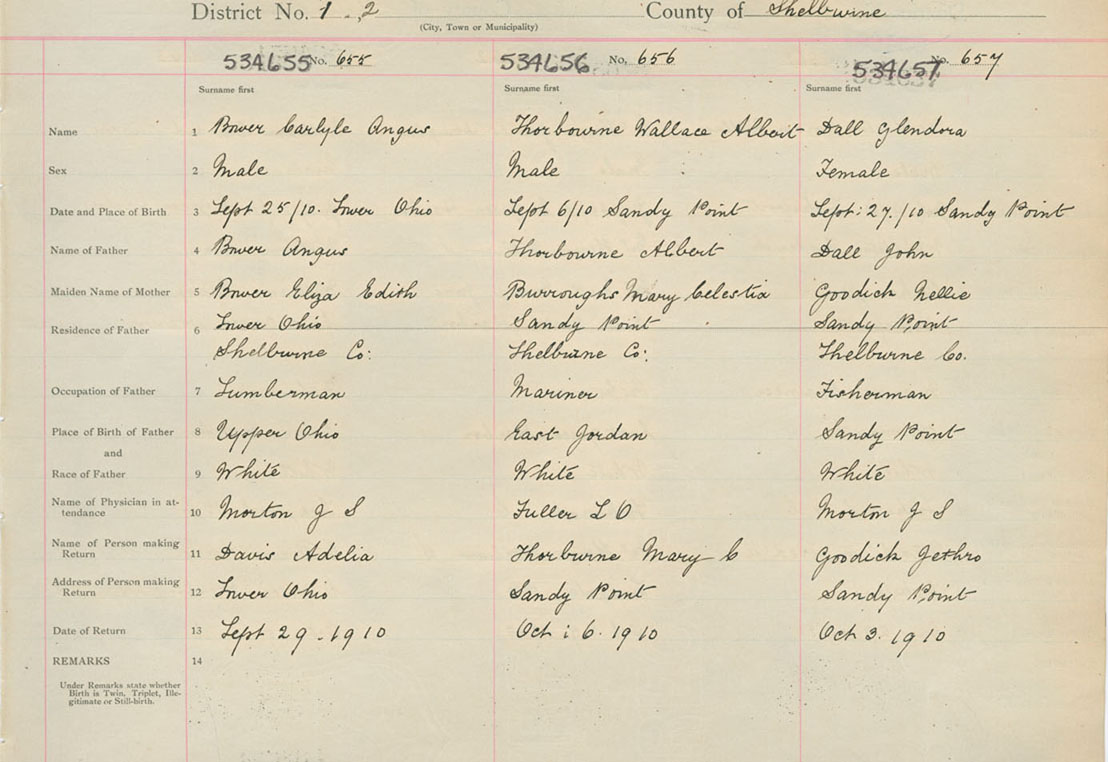 District No. 1 . 2 County of Shelburne
(City, Town or Municipality)
534655 No. 655 534656 No. 656 534657 No. 657
Surname first Surname first Surname first
Name 1 Bower Carlyle Angus Thorbourne Wallace Albert Dall Glendora
Sex 2 Male Male Female
Date and Place of Birth 3 Sept 25/10. Lower Ohio Sept 6/10 Sandy Point Sept: 27./10 Sandy Point
Name of Father 4 Bower Angus Thorbourne Albert Dall John
Maiden Name of Mother 5 Bower Eliza Edith Burroughs Mary Celestia Goodick Nellie
Residence of Father 6 Lower Ohio Sandy Point Sandy Point
Shelburne Co: Shelburne Co: Shelburne Co.
Occupation of Father 7 Lumberman Mariner Fisherman
Place of Birth of Father 8 Upper Ohio East Jordan Sandy Point
and
Race of Father 9 White White White
Name of Physician in at-
tendance 10 Morton J S Fuller L O Morton J S
Name of Person making
Return 11 Davis Adelia Thorburne Mary C Goodick Jethro
Address of Person making
Return 12 Lower Ohio Sandy Point Sandy Point
Date of Return 13 Sept 29 . 1910 Oct : 6. 1910 Oct 3. 1910
REMARKS 14
Under Remarks state whether
Birth is Twin, Triplet, Ille-
gitimate or Still-birth.